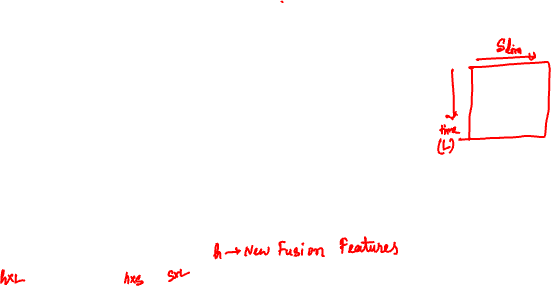 Sdim
time
(L)
h → New Fusion Features
h×L h×s s×L